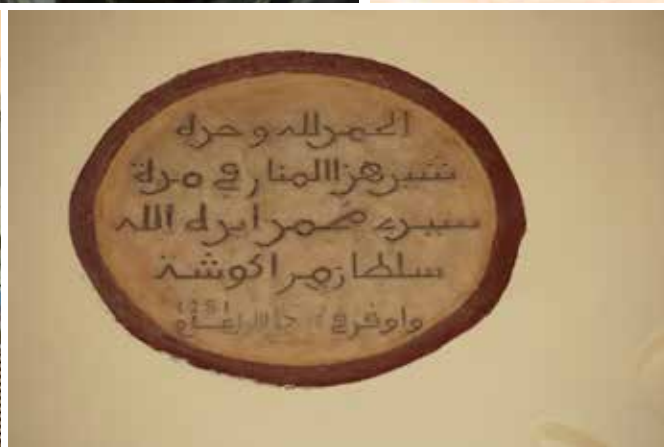 الحمد لله وحده
تشيد هذا المنار في مدة
سيدي محمد ايده الله
سلطان مراكوشة
واوقد في عام 1281